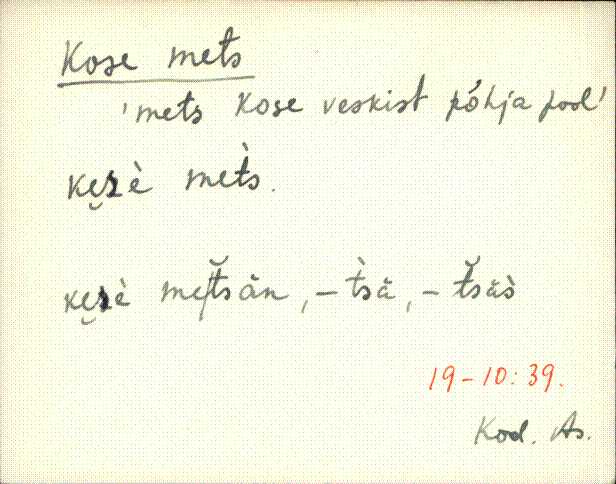 Kose mets
'mets Kose veskist põhja pool'
ke̮zè mèts.
ke̮zè metsän, -tsä, -tsäs
19-10:39.
Kod. As.